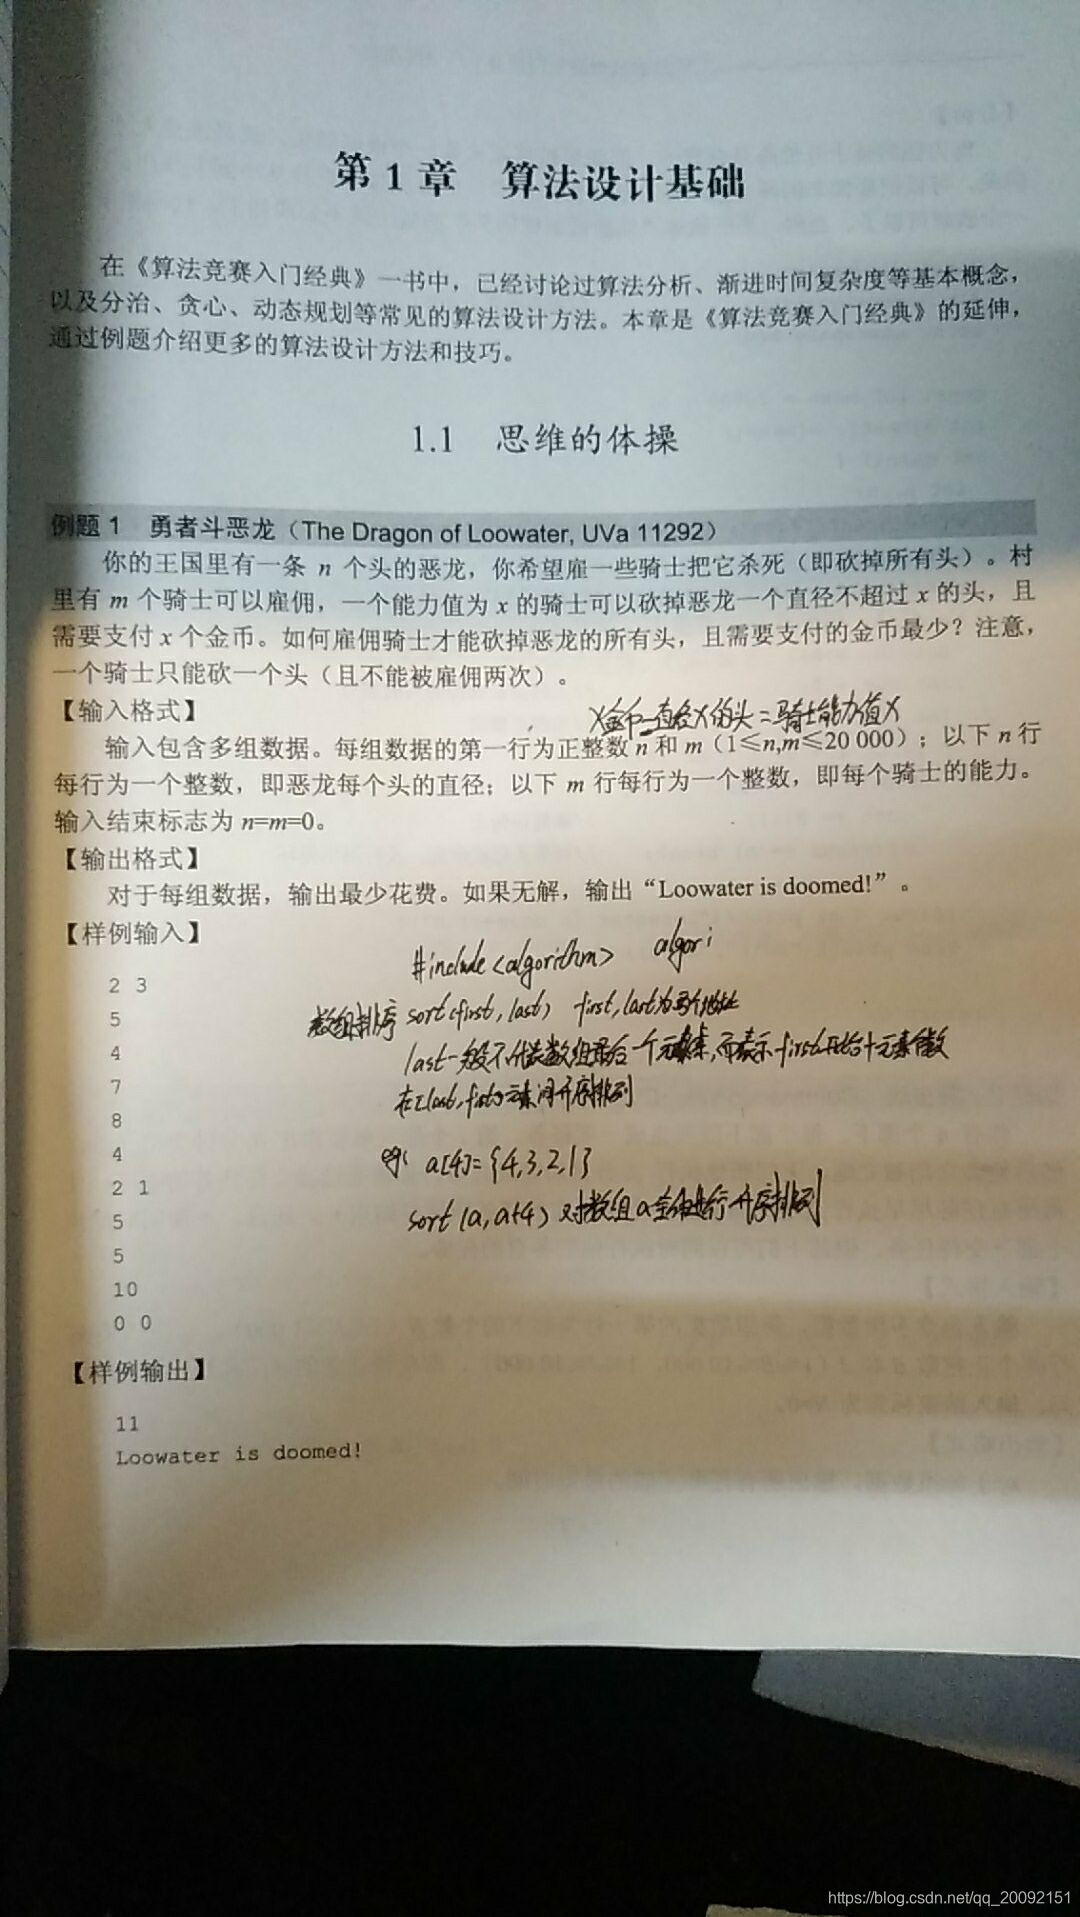 第1章 算法设计基础
在《算法竞赛入门经典》一书中，已经讨论过算法分析、渐进时间复杂度等基本概念，
以及分治、贪心、动态规划等常见的算法设计方法。本章是《算法竞赛入门经典》的延伸，
通过例题介绍更多的算法设计方法和技巧。
1.1 思维的体操
例题1 勇者斗恶龙（The Dragon of Loowater, UVa 11292）
你的王国里有一条 n 个头的恶龙，你希望雇一些骑士把它杀死（即砍掉所有头）。村
里有 m 个骑士可以雇佣，一个能力值为 x 的骑士可以砍掉恶龙一个直径不超过 x 的头，且
需要支付 x 个金币。如何雇佣骑士才能砍掉恶龙的所有头，且需要支付的金币最少？注意，
一个骑士只能砍一个头（且不能被雇佣两次）。
【输入格式】
X金币=直径X的头=骑士能力值X
输入包含多组数据。每组数据的第一行为正整数 n 和 m（1≤n,m≤20 000）；以下 n 行
每行为一个整数，即恶龙每个头的直径；以下 m 行每行为一个整数，即每个骑士的能力。
输入结束标志为 n=m=0。
【输出格式】
对于每组数据，输出最少花费。如果无解，输出“Loowater is doomed!”。
【样例输入】
#include<algorithm> algori
2 3
数组排序 sort(first, last) first, last为两个地址
5
last一般不代表数组最后一个元素,而表示first开始+元素个数
4
在[last, first)元素间升序排列
7
8
4
eg: a[4]={4,3,2,1}
2 1
sort(a, a+4) 对数组a全体进行升序排列
5
5
10
0 0
【样例输出】
11
Loowater is doomed!
https://blog.csdn.net/qq_20092151